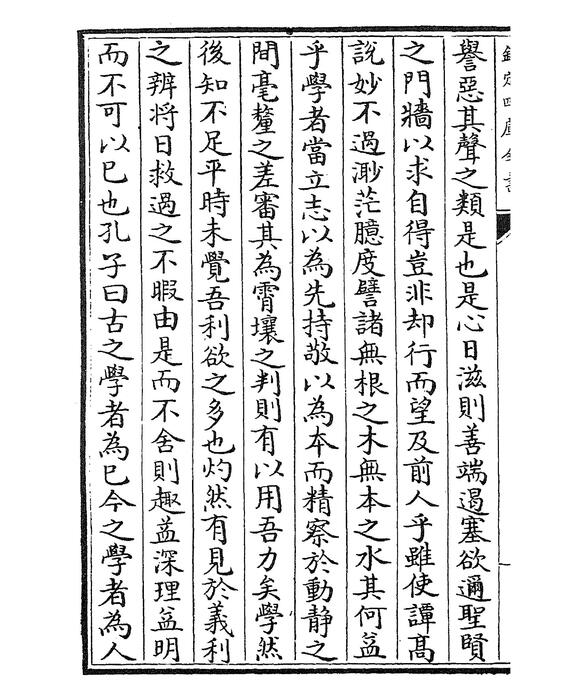 欽定四庫全書
譽惡其聲之類是也是心日滋則善端遏塞欲邇聖賢
之門牆以求自得豈非却行而望及前人乎雖使譚髙
說妙不過渺茫臆度譬諸無根之木無本之水其何益
乎學者當立志以為先持敬以為本而精察於動静之
間毫釐之差審其為霄壤之判則有以用吾力矣學然
後知不足平時未覺吾利欲之多也灼然有見於義利
之辨將日救過之不暇由是而不舍則趣益深理益明
而不可以已也孔子曰古之學者為已今之學者為人